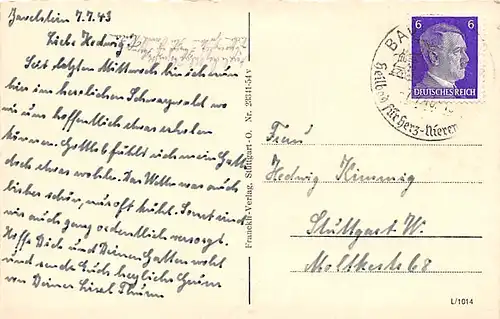 Zavelstein 7.7.43
Liebe Hedwig!
Seit letzten Mittwoch bin ich nun
hier im herrlichen Schwarzwald wo
wir uns hoffentlich etwas erholen
können. Gottlob fühlt sich mein Gatte
doch etwas wohler. Das Wetter war auch
bisher schön, nur oft kühl. Sonst sind
wir auch ganz ordentlich versorgt.
Hoffe Dich und Deinen Gatten wohl
und sende Euch herzliche Grüsse
von Deiner Liesel Thumm
Franckh-Verlag, Stuttgart-O. Nr. 23311-54 v
6 6
DEUTSCHES REICH
BAD
Heilbad für Herz-Nieren
Frau
Hedwig Kimmig
Stuttgart W.
Moltkestr 68
L/1014